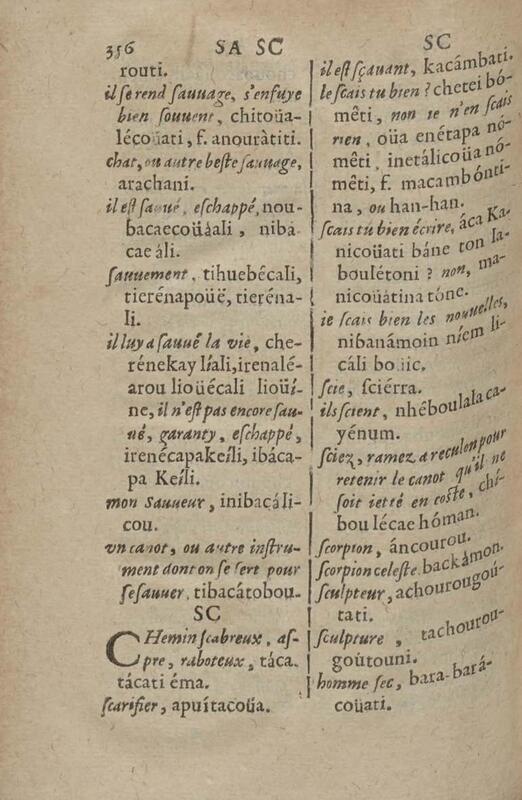 356 SA SC
routi.
il se rend ſauuage, s'enfuye
bien ſouuent, chitoüa-
lécoüati, f. anouràtiti.
chat, ou autre beſte ſauuage,
arachani.
il eſt ſaũé, eſchappé, nou-
bacaecoüáali, nibá
cae áli.
ſauuement, tihuebécali,
tierénapoüë, tieréna-
li.
il luy a ſauuê la vie, che-
rénekay líali, irenalé-
arou lioüécali lioüí-
ne, il n'eſt pas encore ſau-
ué, garanty, eſchappé,
irenécapakeíli, ibáca-
pa Keíli.
mon Sauueur, inibacáli-
cou.
vn canot, ou autre inſtru-
ment dont on ſe ſert pour
ſe ſauuer, tibacátobou.
SC
CHemin ſcabreux, aſ-
pre, raboteux, táca.
tácati éma.
ſcarifier, apuítacoüa.
SC
il eſt ſçauant, kacámbati.
le ſcais tu bien? chetei bó-
mêti, non ie n'en ſcais
rien, oüa enétapa nó-
mêti, inetálicoüa nó-
mêti, f. macambónti-
na, ou han-han.
ſcais tu bien écrire, áca Ka-
nicoüati báne ton Ia-
boulétoni? non, ma-
nicoüátina tóne.
ie ſcais bien les nouuelles,
nibanámoin níem li-
cáli
ſcie, ſciérra.
ils ſcient, nhéboulala ca-
yénum.
ſciez, ramez a reculon pour
retenir le canot qu'il ne
ſoit ietté en coſte, chí-
bou lécae hóman.
ſcorpion, áncourou.
ſcorpion celeſte backámon.
ſculpteur, achourougoú-
tati.
ſculpture, tachourou-
goútouni.
homme ſec, bara-bará-
coüati.